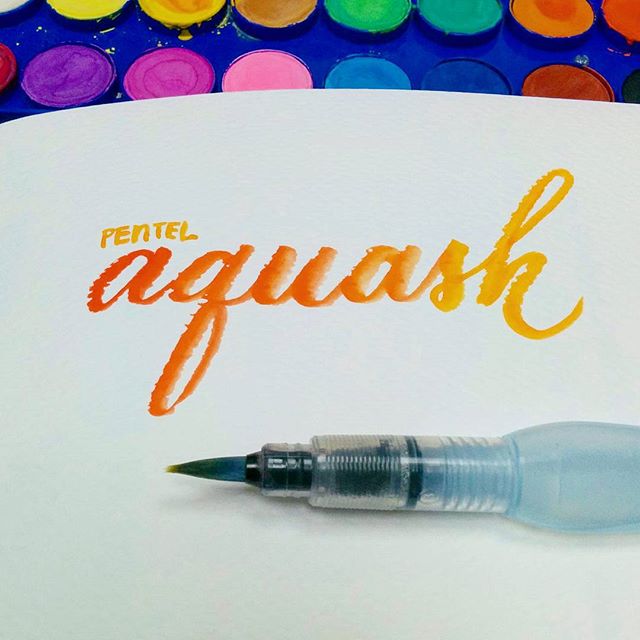 PENTEL
aquash